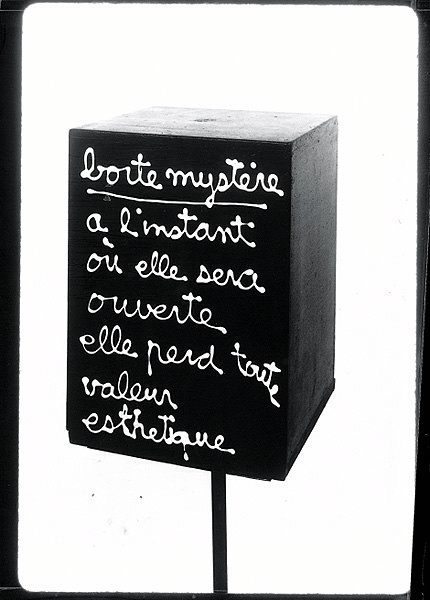 boite mystère
a l'instant
où elle sera
ouverte
elle perd toute
valeur
esthetique